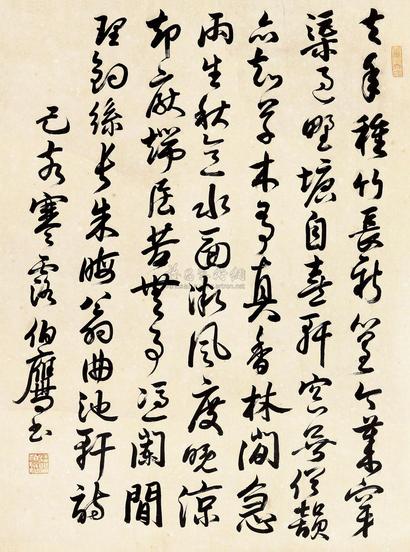 去年種竹長新篁今歲穿
渠過野塘自喜軒窗無俗韻
亦知草木有真香林間急
雨生秋意水面微風度晚涼
却厭端居苦無事憑闌閒
理釣絲長朱晦翁曲池軒詩
己亥寒露伯鷹書